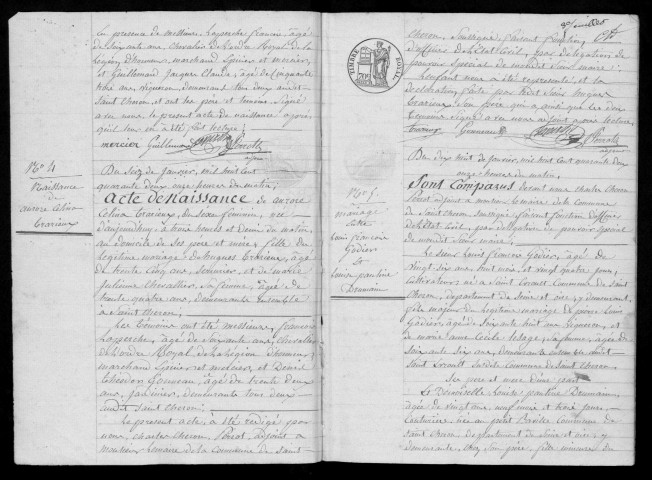 en présence de messieurs Laperche francois, âgé
de Soixante ans, chevalier de l'ordre Royal de la
Légion d'honneur, marchand Epicier et mercier,
et Guillemard Jacques Claude, âgé de cinquante
trois ans, demeurant tous deux audit
Saint Cheron, et ont les père et témoins Signé
avec nous, le present acte de naissance après
qu'il leur en a été fait lecture.
mercier Guillemard
N° 4
Naissance
de
aurore Celina
Trarieux
Du Seize de Janvier, mil huit cent
quarante deux onze heures du matin,
Acte de Naissance de aurore
Celina Trarieux, du Sexe féminin, née
d'aujourd'hui, à trois heures et demi du matin,
au domicile de Ses père et mère, fille du
Légitime mariage de hugues Trarieux, âgé
de trente cinq ans, et de marie
Julienne Chevallier, Sa femme, âgée de
trente quatre ans, demeurants ensemble
à Saint Cheron.
Les Témoins ont été messieurs, francois
Laperche, âgé de Soixante ans, chevalier
de l'ordre Royal de la Légion d'honneur,
marchand Epicier et mercier, et Denis
Théodore Gonneau, âgé de trente deux
ans, Jardinier, demeurants tous deux
audit Saint Cheron.
Le present acte, a été rédigé par
nous, charles Cheron, Poirot adjoint à
monsieur Le maire de la Commune de Saint
Cheron, Soussigné, faisant fonction
d'officier de l'état Civil, par délégation de
pouvoir Spécial de mondit Sieur maire.
L'enfant nous a été représenté et la
déclaration faite par ledit Sieur hugues
Trarieux Son père, qui a ainsi que les dits
témoins Signé avec nous adjoint après lecture.
trarieux Gonneau
N° 5
mariage
entre
Louis francois
Godier
et
Louise pauline
Deumain
Du dix huit de Janvier, mil huit cent quarante deux
onze heures du matin,
Sont Comparus devant nous charles Cheron
Poirot adjoint à monsieur Le maire de la Commune
de Saint Cheron Soussigné, faisant fonction d'officier
de l'état Civil, par délégation de pouvoir Spécial
de mondit Sieur maire.
Le Sieur Louis francois Godier, âgé de
vingt Six ans, huit mois et vingt quatre jours,
cultivateur né à Saint Evroult Commune de Saint
Cheron, département de Seine et oise, y demeurant,
fils majeur du légitime mariage de pierre Louis
Godier, âgé de Soixante huit ans,
et de marie anne Cecile Lesage, Sa femme, âgée de
Soixante Six ans, demeurants ensemble audit
Saint Evroult Susdite Commune de Saint Cheron.
Ses père et mère d'une part
Et Demoiselle Louise pauline Deumain,
âgée de vingt ans, neuf mois et treize jours,
Couturière née au petit Baville Commune de
Saint Cheron département de Seine et oise, y
demeurante, chez Son père, fille mineure du